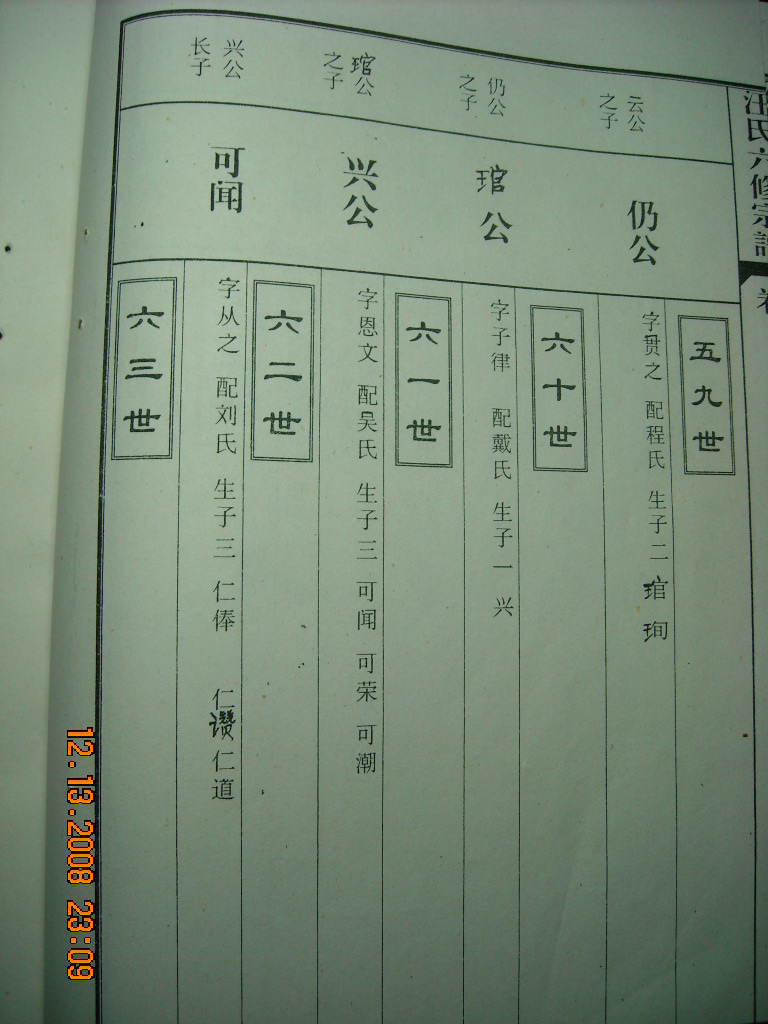 汪氏六修宗譜
卷
五九世
云公
之子
仍公
字贯之 配程氏 生子二 琯 珣
六十世
仍公
之子
琯公
字子律 配戴氏 生子一 兴
六一世
琯公
之子
兴公
字恩文 配吴氏 生子三 可闻 可荣 可潮
六二世
兴公
长子
可闻
字从之 配刘氏 生子三 仁俸 仁讚 仁道
六三世
12.13.2008 23:09